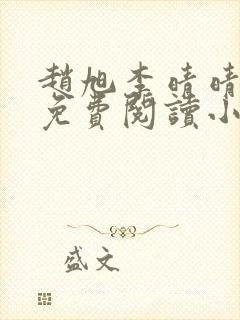 趙旭李晴晴
免費閱讀小
盛文